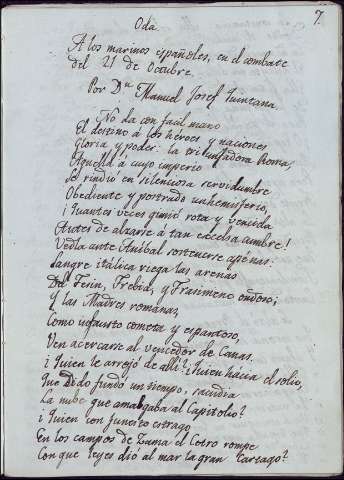 7.
Oda
A los marinos españoles, en el combate
del 21 de Octubre.
Por Dn Manuel Josef Quintana.
No da con facil mano
El destino á los héroes y naciones
Gloria y poder: la triunfadora Roma,
Aquella á cuyo imperio
Se rindió en silenciosa servidumbre
Obediente y postrado un hemisferio,
¡Quantas veces gimió rota y vencida
Antes de alzarse á tan excelsa cumbre!
Vedla ante Aníbal sostenerse apénas:
Sangre itálica riega las arenas
Del Tesin, Trebia, y Trasimeno ondoso;
Y las Madres romanas,
Como infausto cometa y espantoso,
Ven acercarse al vencedor de Canas.
¿Quien le arrojó de allí? ¿Quien hácia el solio,
Que Dido fundó un tiempo, sacudia
La nube que amagaba al Capitolio?
¿Quien con funesto estrago
En los campos de Zama el Cetro rompe
Con que leyes dió al mar la gran Cartago?